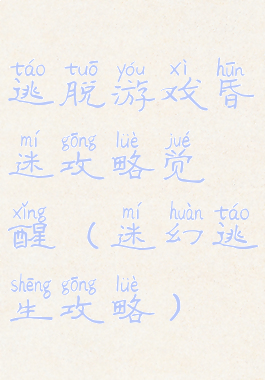 táo tuō yóu xì hūn
逃脱游戏昏
mí gōng lüè jué
迷攻略觉
xǐng mí huàn táo
醒（迷幻逃
shēng gōng lüè
生攻略）